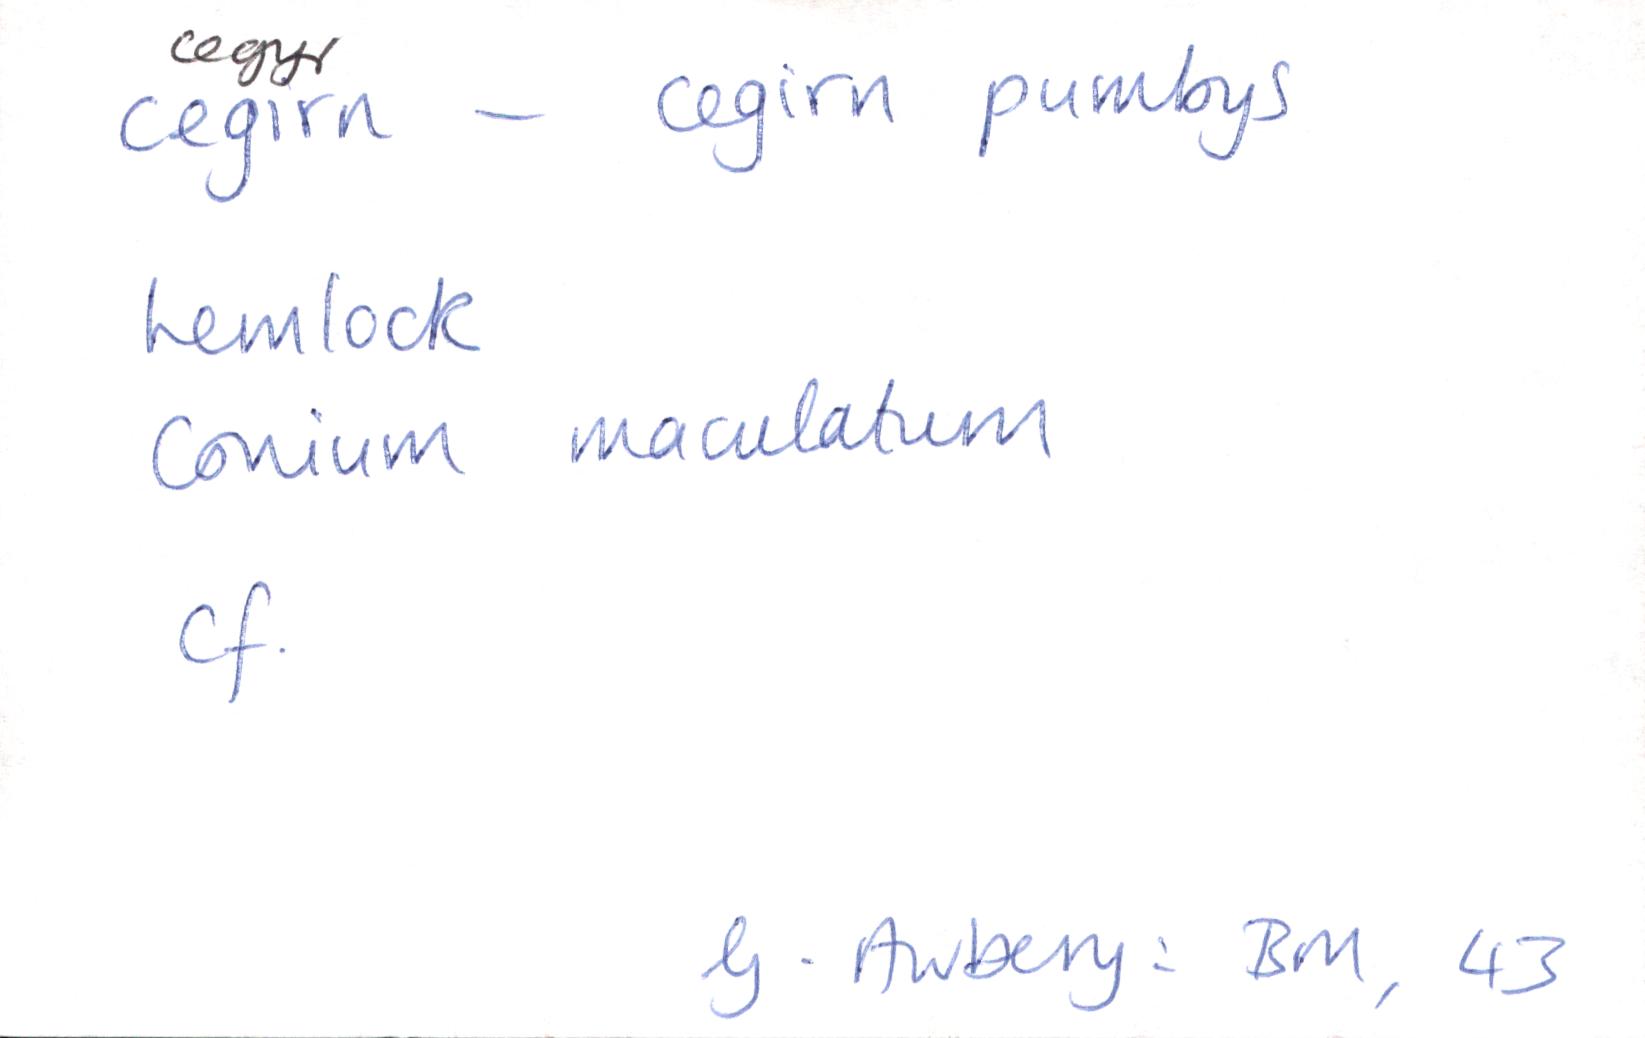 cegyr
cegirn - cegirn pumbys
hemlock
Conium maculatum
cf.
G. Awbery: BM, 43